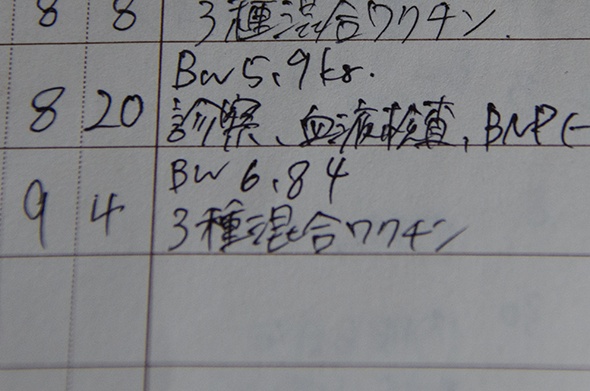 8 8 3種混合ワクチン.
BW 5.9kg.
8 20 診察、血液検査, BNP(-
BW 6.84
9 4 3種混合ワクチン